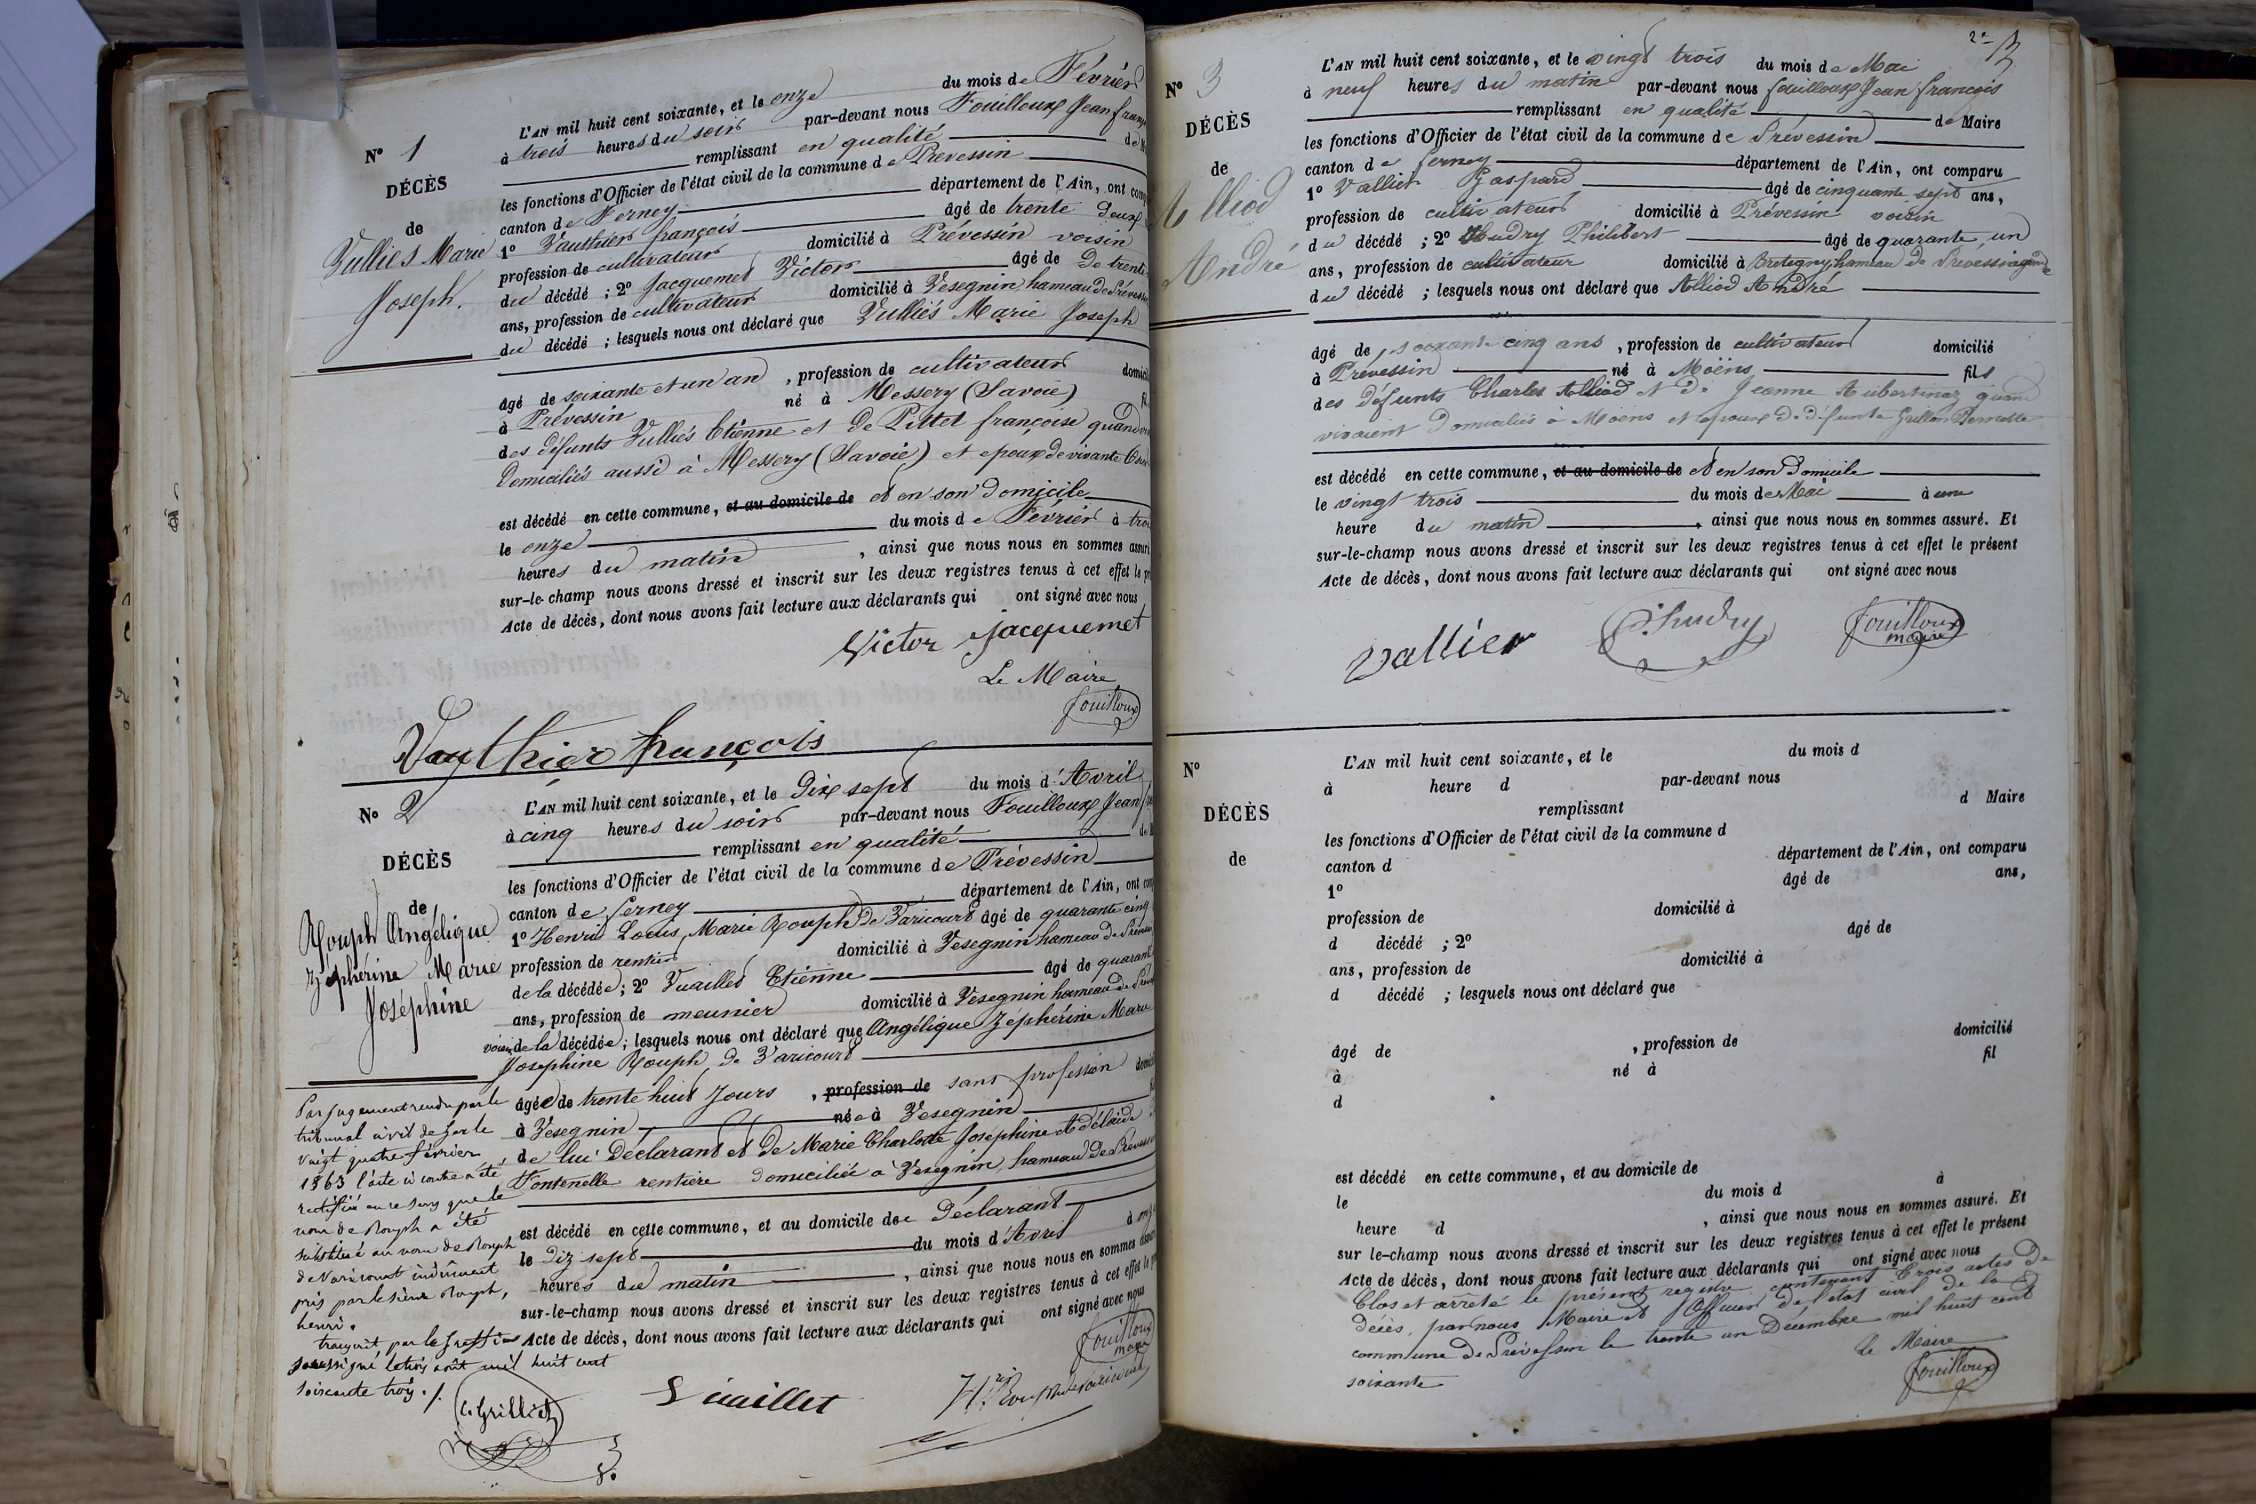 N° 1
DÉCÈS
de
Vulliés Marie
Joseph.
L'AN mil huit cent soixante, et le onze du mois de Février
à trois heures du soir par-devant nous Fouilloux Jean
remplissant en qualité
les fonctions d'Officier de l'état civil de la commune de Prevessin
canton de Ferney département de l'Ain, ont
1° Vauthier françois âgé de trente deux
profession de cultivateur domicilié à Prévessin voisin
du décédé ; 2° Jacquemet Victor âgé de de trente
ans, profession de cultivateur domicilié à Vesegnin hameau de
du décédé ; lesquels nous ont déclaré que Vulliés Marie Joseph
âgé de soixante et un an , profession de cultivateur
à Prévessin né à Messery (Savoie)
des défunts Vulliés Etienne et de Pittet françoise quand
domiciliés aussi à Messery (Savoie) et epoux de vivante
est décédé en cette commune, et au domicile de et en son domicile
le onze du mois de Février à
heures du matin , ainsi que nous nous en sommes
sur-le-champ nous avons dressé et inscrit sur les deux registres tenus à cet effet le
Acte de décès, dont nous avons fait lecture aux déclarants qui ont signé avec nous
Victor Jacquemet
Le Maire
Fouilloux
Vauthier françois
N° 2
DÉCÈS
de
Rouph Angélique
Zéphérine Marie
Joséphine
L'AN mil huit cent soixante, et le Dix sept du mois d'Avril
à cinq heures du soir par-devant nous Fouilloux Jean
remplissant en qualité
les fonctions d'Officier de l'état civil de la commune de Prévessin
canton de ferney département de l'Ain, ont
1° Henri Louis Marie Rouph de Varicourt âgé de quarante cinq
profession de rentier domicilié à Vesegnin hameau de
de la décédée ; 2° Vuaillet Etienne âgé de
ans, profession de meunier domicilié à Vesegnin hameau de
voisin de la décédée ; lesquels nous ont déclaré que Angélique Zéphérine Marie
Josephine Rouph de Varicourt
âgée de trente huit Jours , profession de sans profession
à Vesegnin née à Vesegnin
de lui déclarant et de Marie Charlotte Joséphine Adélaïde
Fontenelle rentière domiciliée à Vesegnin hameau de
est décédé en cette commune, et au domicile de Déclarant
le dix sept du mois d'Avril à
heures du matin , ainsi que nous nous en sommes
sur-le-champ nous avons dressé et inscrit sur les deux registres tenus à cet effet le
Acte de décès, dont nous avons fait lecture aux déclarants qui ont signé avec nous
Fouilloux
maire
E Vuaillet
Par jugement rendu par le
tribunal civil de Gex le
vingt quatre février
1863 l'acte ci contre a été
rectifié en ce sens que le
nom de Rouph a été
substitué au nom de Rouph
de Varicourt indûment
pris par le sieur Rouph,
henri.
transcrit, par le greffier
soussigné le trois août mil huit cent
soixante trois ./.
C. Grilliet
2e
N° 3
DÉCÈS
de
Alliod
André
L'AN mil huit cent soixante, et le vingt trois du mois de Mai
à neuf heures du matin par-devant nous fouilloux Jean françois
remplissant en qualité de Maire
les fonctions d'Officier de l'état civil de la commune de Prévessin
canton de ferney département de l'Ain, ont comparu
1° Vallier Gaspard âgé de cinquante sept ans,
profession de cultivateur domicilié à Prévessin voisin
du décédé ; 2° Hudry Philibert âgé de quarante un
ans, profession de cultivateur domicilié à Bretegny hameau de Prevessin
du décédé ; lesquels nous ont déclaré que Alliod André
âgé de soixante cinq ans , profession de cultivateur domicilié
à Prévessin né à Moëns fils
des défunts Charles Alliod et de Jeanne Aubertinaz quand
vivaient domiciliés à Moëns et epoux de défunte Pernette
est décédé en cette commune, et au domicile de et en son domicile
le vingt trois du mois de Mai à une
heure du matin , ainsi que nous nous en sommes assuré. Et
sur-le-champ nous avons dressé et inscrit sur les deux registres tenus à cet effet le présent
Acte de décès, dont nous avons fait lecture aux déclarants qui ont signé avec nous
Vallier
P. hudry
Fouilloux
maire
N°
DÉCÈS
de
L'AN mil huit cent soixante, et le du mois d
à heure d par-devant nous
remplissant d Maire
les fonctions d'Officier de l'état civil de la commune d
canton d département de l'Ain, ont comparu
1° âgé de ans,
profession de domicilié à
d décédé ; 2° âgé de
ans, profession de domicilié à
d décédé ; lesquels nous ont déclaré que
âgé de , profession de domicilié
à né à fil
d
est décédé en cette commune, et au domicile de
le du mois d à
heure d , ainsi que nous nous en sommes assuré. Et
sur le-champ nous avons dressé et inscrit sur les deux registres tenus à cet effet le présent
Acte de décès, dont nous avons fait lecture aux déclarants qui ont signé avec nous
Clos et arrêté le présent registre contenant trois actes de
décès, par nous Maire et Officier de l'état civil de la
commune de Prévessin le trente un Décembre mil huit cent
soixante
Le Maire
Fouilloux